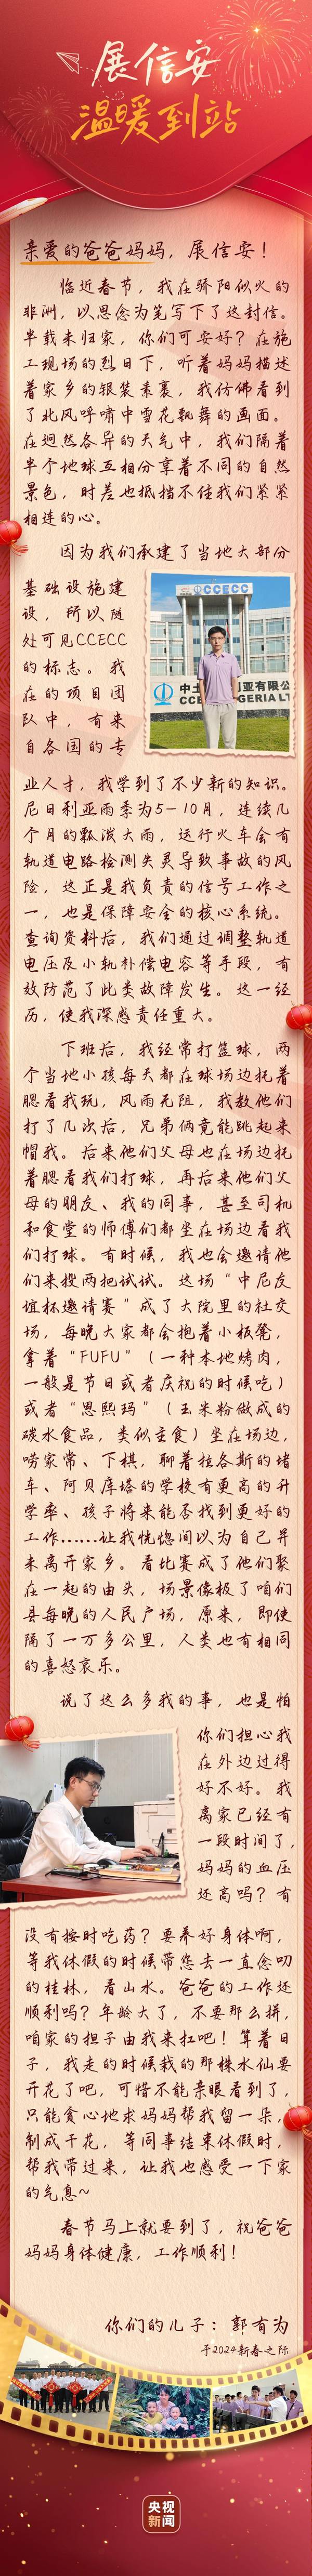 展信安
温暖到站
亲爱的爸爸妈妈，展信安！
临近春节，我在骄阳似火的
非洲，以思念为笔写下了这封信。
半载未归家，你们可安好？在施
工现场的烈日下，听着妈妈描述
着家乡的银装素裹，我仿佛看到
了北风呼啸中雪花飘舞的画面。
在迥然各异的天气中，我们隔着
半个地球互相分享着不同的自然
景色，时差也抵挡不住我们紧紧
相连的心。
因为我们承建了当地大部分
基础设施建
设，所以随
处可见CCECC
的标志。我
在的项目团
队中，有来
自各国的专
CCECC
中土
利亚有限公
CCE
GERIA LT
业人才，我学到了不少新的知识。
尼日利亚雨季为5-10月，连续几
个月的瓢泼大雨，运行火车会有
轨道电路检测失灵导致事故的风
险，这正是我负责的信号工作之
一，也是保障安全的核心系统。
查询资料后，我们通过调整轨道
电压及小轨补偿电容等手段，有
效防范了此类故障发生。这一经
历，使我深感责任重大。
下班后，我经常打篮球，两
个当地小孩每天都在球场边托着
腮看我玩，风雨无阻，我教他们
打了几次后，兄弟俩竟能跳起来
帽我。后来他们父母也在场边托
着腮看我们打球，再后来他们父
母的朋友、我的同事，甚至司机
和食堂的师傅们都坐在场边看我
们打球。有时候，我也会邀请他
们来投两把试试。这场“中尼友
谊杯邀请赛”成了大院里的社交
场，每晚大家都会抱着小板凳，
拿着“FUFU”（一种本地烤肉，
一般是节日或者庆祝的时候吃）
或者“恩熙玛”（玉米粉做成的
碳水食品，类似主食）坐在场边，
唠家常、下棋，聊着拉各斯的堵
车、阿贝库塔的学校有更高的升
学率、孩子将来能否找到更好的
工作……让我恍惚间以为自己并
未离开家乡。看比赛成了他们聚
在一起的由头，场景像极了咱们
县每晚的人民广场，原来，即使
隔了一万多公里，人类也有相同
的喜怒哀乐。
说了这么多我的事，也是怕
你们担心我
在外边过得
好不好。我
离家已经有
一段时间了，
妈妈的血压
还高吗？有
没有按时吃药？要养好身体啊，
等我休假的时候带您去一直念叨
的桂林，看山水。爸爸的工作还
顺利吗？年龄大了，不要那么拼，
咱家的担子由我来扛吧！算着日
子，我走的时候栽的那株水仙要
开花了吧，可惜不能亲眼看到了，
只能贪心地求妈妈帮我留一朵，
制成干花，等同事结束休假时，
帮我带过来，让我也感受一下家
的气息~
春节马上就要到了，祝爸爸
妈妈身体健康，工作顺利！
你们的儿子：郭有为
于2024新春之际
央视
新闻